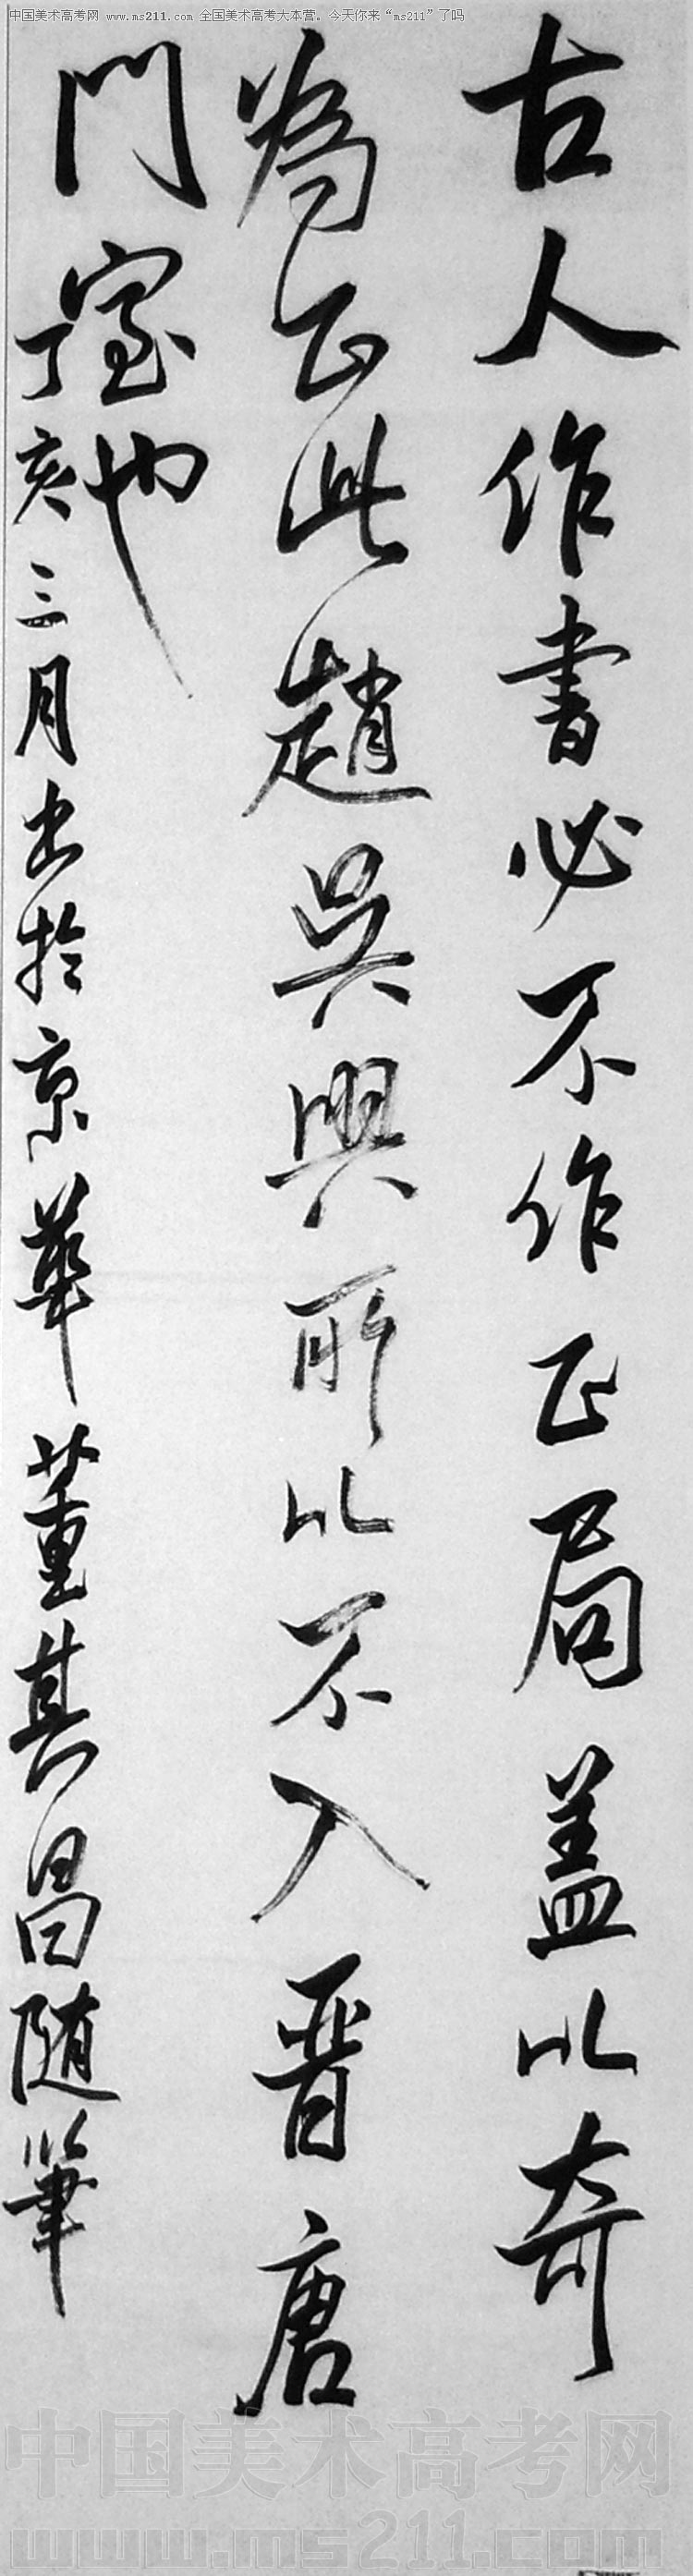 中国美术高考网 www.ms211.com 全国美术高考大本营。今天你来“ms211”了吗
古人作書必不作正局盖以奇
為正此趙吳興所以不入晉唐
門室也
丁亥三月書於京華董其昌随筆
中国美术高考网
www.ms211.com